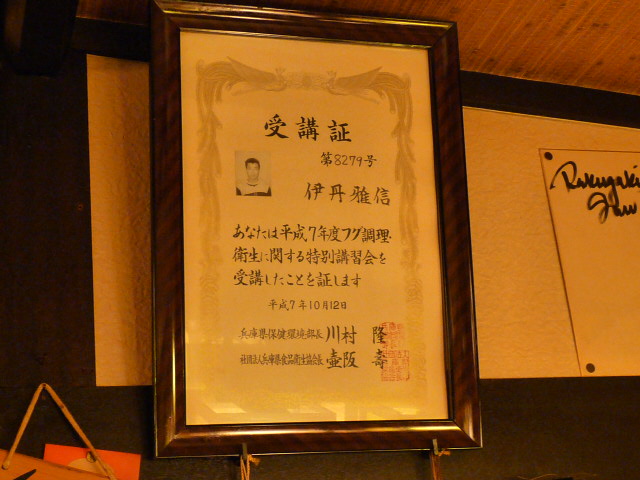 受講証
第8279号
伊丹雅信
あなたは平成7年度フグ調理・
衛生に関する特別講習会を
受講したことを証します
平成7年10月12日
兵庫県保健環境部長 川村 隆
社団法人兵庫県食品衛生協会長 壷阪 壽